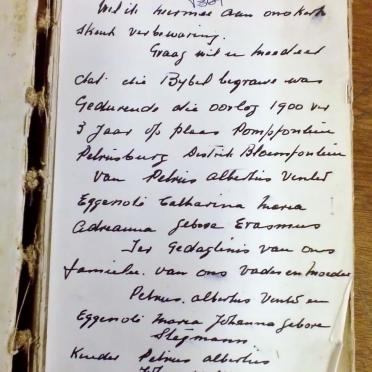 Wil ik hiermee aan ons kerk
skenk ver bewaring.
Graag wil u meedeel
dat die Bybel begrawe was
Gedurende die oorlog 1900 vir
3 Jaar op plaas Pompfontein
Petrusburg Distrik Bloemfontein
van Petrus albertus Venter
Eggenote Catharina Maria
Adrianna gebore Erasmus
Ter Gedagtenis van ons
familie. van ons vader en moeder
Petrus. albertus Venter en
Eggenote Maria Johanna gebore
Stegmann
Kinder Petrus albertus